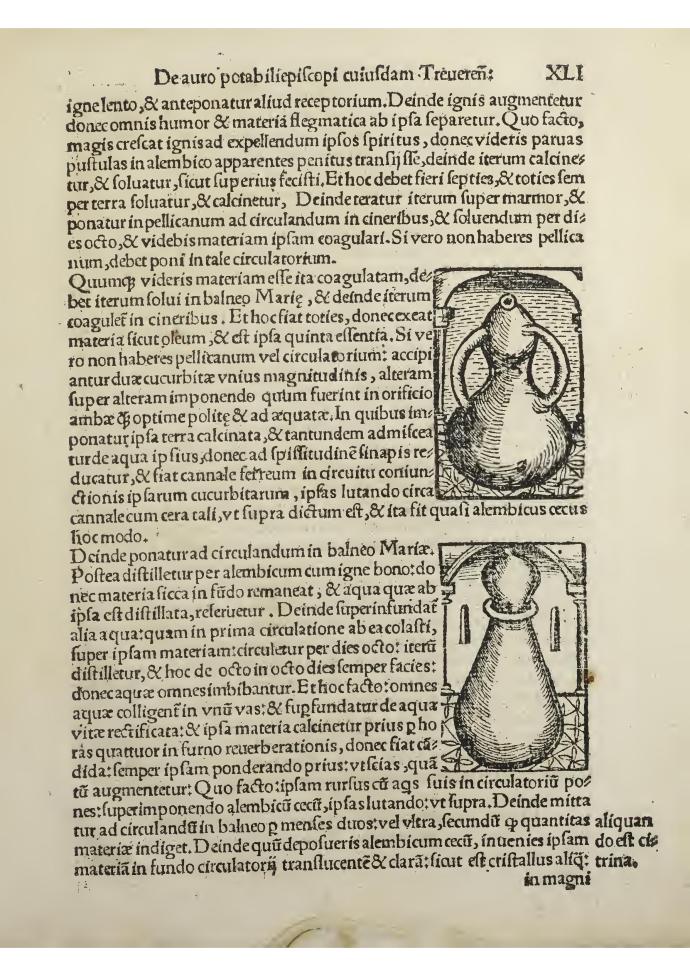 De auro potabili episcopi cuiusdam Treueren̄: XLI
igne lento, & anteponatur aliud receptorium. Deinde ignis augmentetur
donec omnis humor & materiā flegmatica ab ipsa separetur. Quo facto,
magis crescat ignis ad expellendum ipsos spiritus, donec videris paruas
pustulas in alembico apparentes penitus transijsse, deinde iterum calcine⸗
tur, & soluatur, sicut superius fecisti. Et hoc debet fieri septies, & toties sem
per terra soluatur, & calcinetur, Deinde teratur iterum super marmor, &
ponatur in pellicanum ad circulandum in cineribus, & soluendum per di⸗
es octo, & videbis materiam ipsam coagulari. Si vero non haberes pellica
num, debet poni in tale circulatorium.
Quumq; videris materiam esse ita coagulatam, de⸗
bet iterum solui in balneo Marię, & deinde iterum
coagulet̄ in cineribus. Et hoc fiat toties, donec exeat
materia sicut oleum, & est ipsa quinta essentia. Si ve
ro non haberes pellicanum vel circulatorium: accipi
antur duæ cucurbitæ vnius magnitudinis, alteram
super alteram imponendo quum fuerint in orificio
ambæ q̈ȝ optime politę & ad æquatæ. In quibus im⸗
ponatur ipsa terra calcinata, & tantundem admiscea
tur de aqua ipsius, donec ad spissitudinē sinapis re⸗
ducatur, & fiat cannale ferreum in circuitu coniun⸗
ctionis ipsarum cucurbitarum, ipsas lutando circa
cannale cum cera tali, vt supra dictum est, & ita fit quasi alembicus cecus
hoc modo.
Deinde ponatur ad circulandum in balneo Mariæ.
Postea distilletur per alembicum cum igne bono: do
nec materia sicca in fūdo remaneat, & aqua quæ ab
ipsa est distillata, reseruetur. Deinde superinfundat̄
alia aqua: quam in prima circulatione ab ea colasti,
super ipsam materiam: circuletur per dies octo: iterū
distilletur, & hoc de octo in octo dies semper facies:
donec aquæ omnes imbibantur. Et hoc facto: omnes
aquæ colligent̄ in vnū vas: & sup̱fundatur de aqua
vitæ rectificata: & ipsa materia calcinetur prius p̱ ho
ras quattuor in furno reuerberationis, donec fiat cā⸗
dida: semper ipsam ponderando prius: vt scias, quā
tū augmentetur: Quo facto: ipsam rursus cū aqs suis in circulatoriū po⸗
nes: superimponendo alembicū cecū, ipsas lutando: vt supra. Deinde mitta
tur ad circulandū in balneo p̱ menses duos: vel vltra, secundū qp quantitas aliquan
materiæ indiget. Deinde quū deposueris alembicum cecū, inuenies ipsam do est ci⸗
materiā in fundo circulatorij translucentē & clarā: sicut est cristallus aliq̄: trina.
in magni